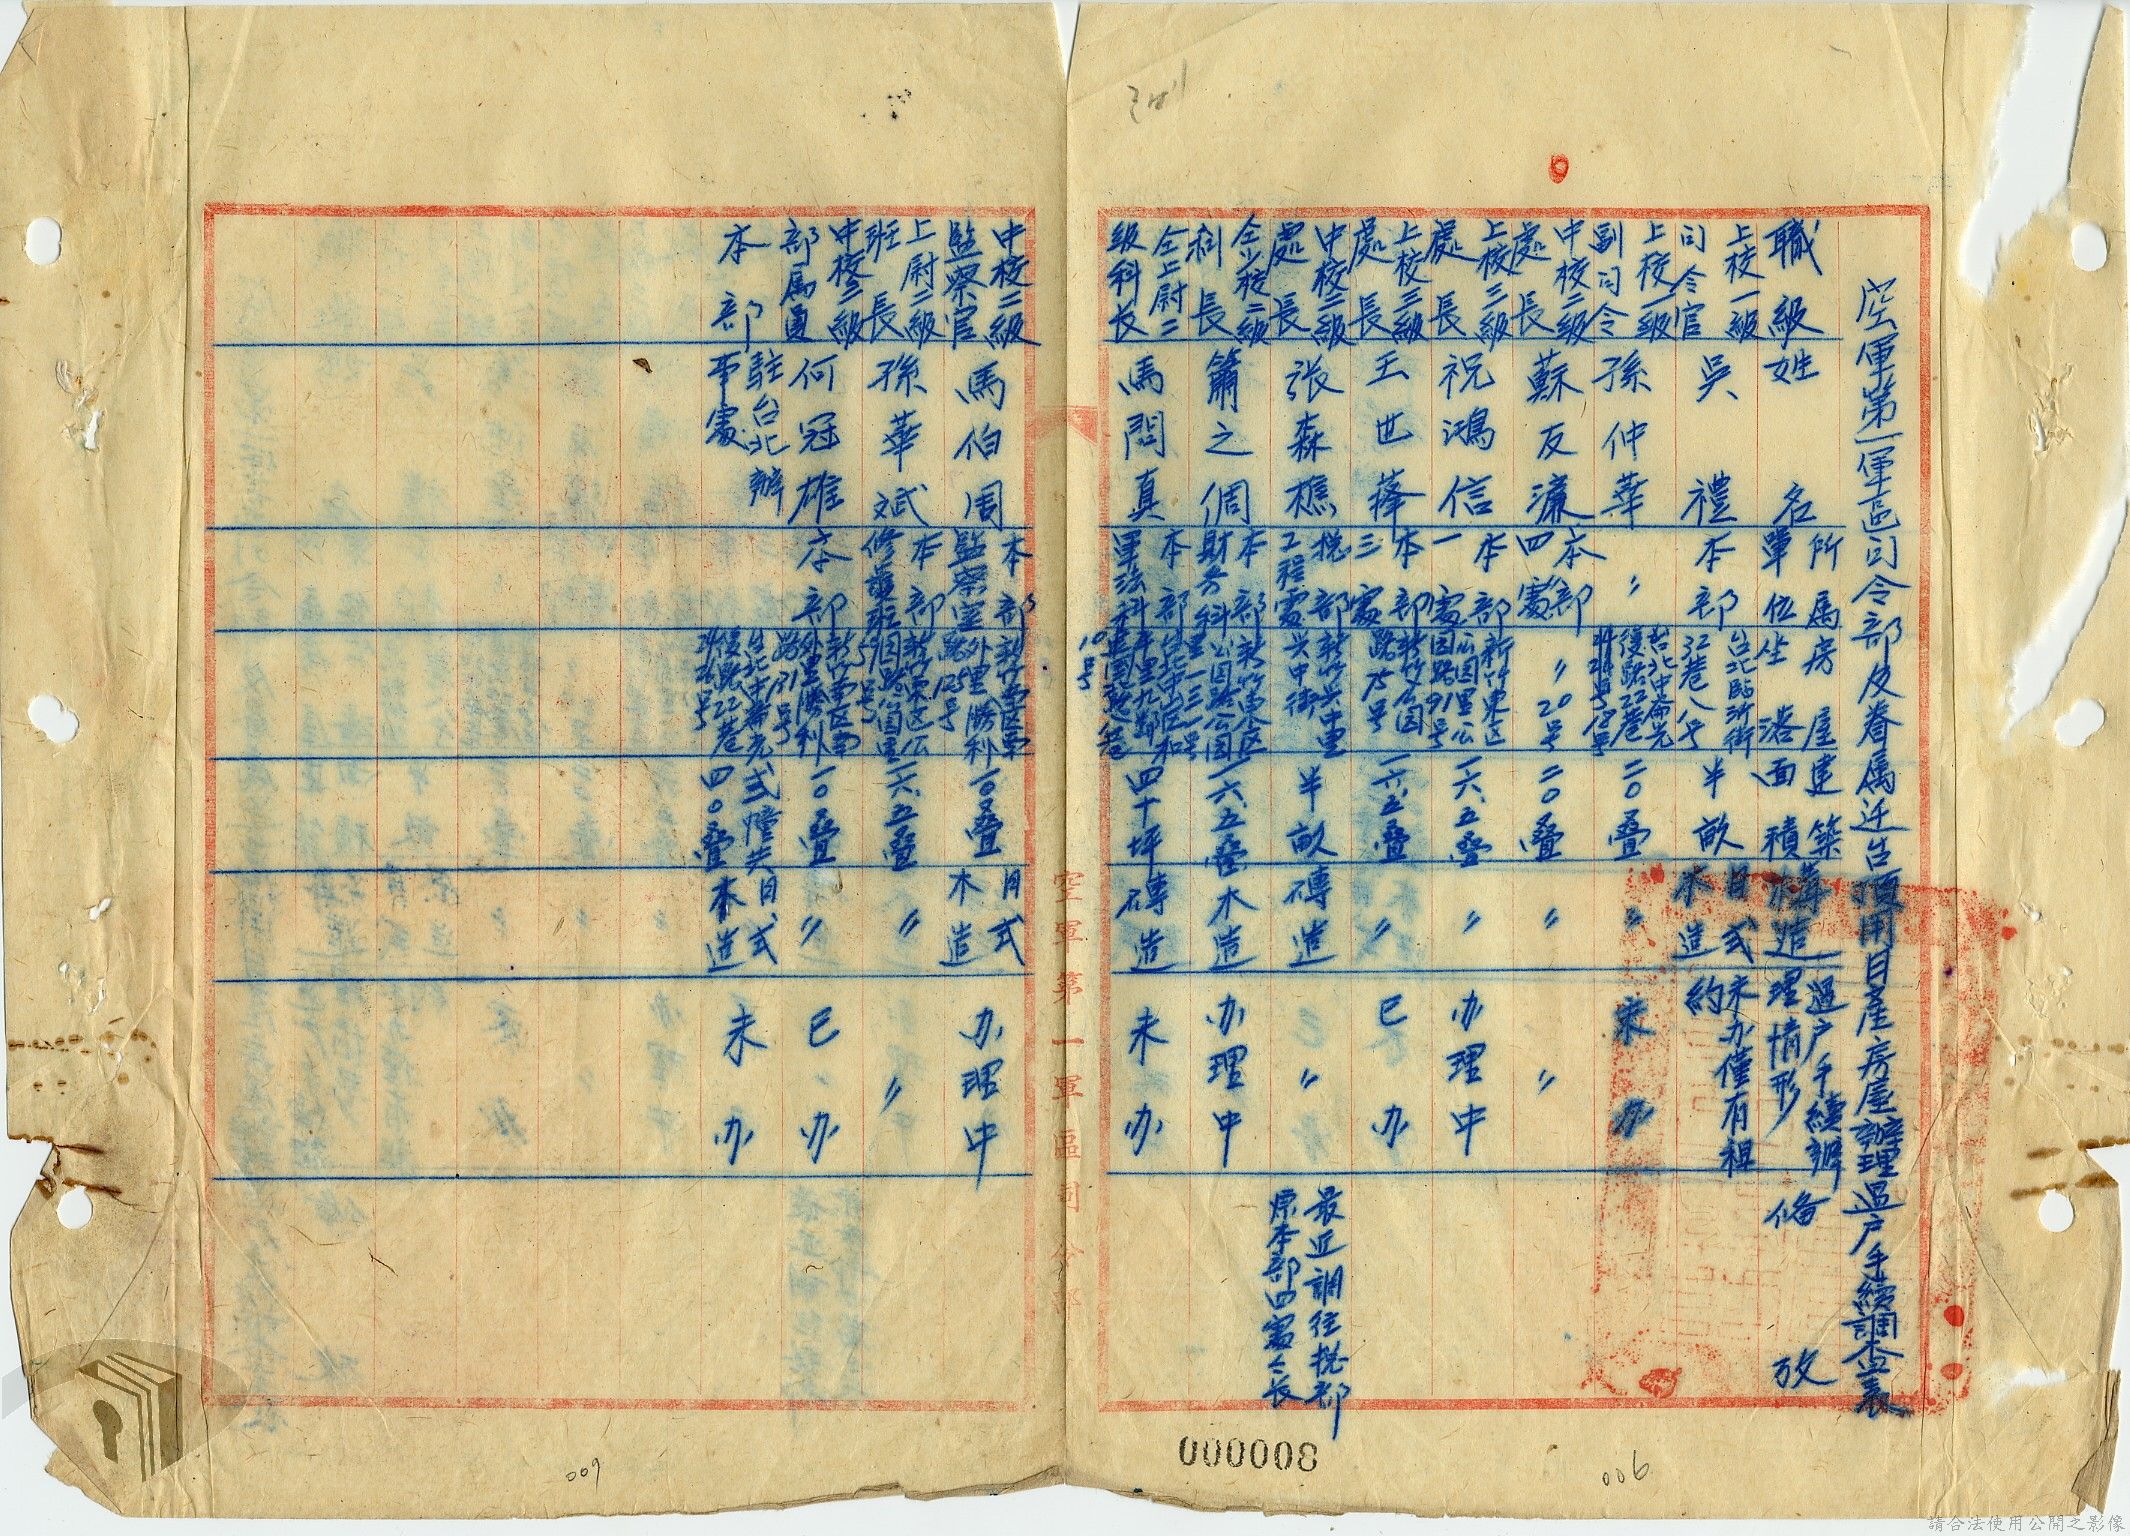 空軍第一軍區司令部及眷属迁台頂用日產房屋辦理過户手續調查表
職級
姓名
所属單位
房屋坐落
建築面積
構造
過户手續辦理情形
俻攷
上校一級司令官
吳禮
本部
台北臨沂街32巷八号
半畝
日式木造
未办僅有租約
上校一級副司令
孫仲華
〃
台北中崙光復路22巷
18号
二〇叠
〃
未办
中校二級處長
蘇友濂
本部四處
〃20号
二〇叠
〃
〃
上校三級處長
祝鴻信
本部一處
新竹東区公園里公園路91号
一六.五叠
〃
办理中
上校三級處長
王世葎
本部三處
新竹公园路75号
一六.五叠
〃
已办
中校二級處長
張森樵
搃部工程處
新竹兴中里兴中街
半畝
磚造
〃
最近調往搃部原本部四處處長
仝少校二級科長
簫之倜
本部財务科
一六.五叠
木造
办理中
仝上尉二級科長
馬問真
本部軍法科
10号
四十坪
磚造
未办
空軍第一軍區司令部
中校二級監察官
馬伯周
本部監察室
新竹南区南外里勝利路125号
一〇叠
日式木造
办理中
上尉二級班長
孫華斌
本部修護班
一六.五叠
〃
〃
中校二級部属員
何冠雄
本部
新竹南区南外里勝利路131号
一〇叠
〃
已办
本部
駐台北辦事處
台北中崙光復路22巷
24
26号
弍幢共四〇叠
日式木造
未办
000008
006
009
請合法使用公開之影像